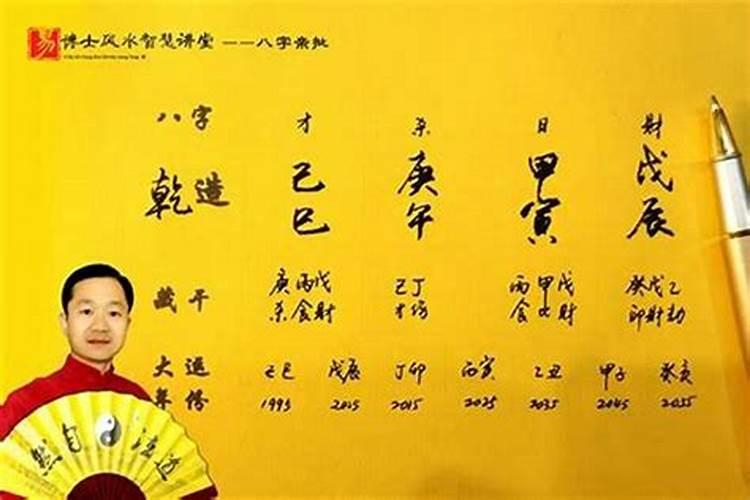 易 博士风水智慧讲堂 ——八字亲批
八字 才 杀 日 财
己 庚 甲 戊
乾造
巳 午 寅 辰
藏干 庚丙戊 己丁 丙甲戊 癸戊乙
杀食财 才伤 食比财 印财劫
大運 己巳 戊辰 丁卯 丙寅 乙丑 甲子 癸亥
年份 1995 2005 2015 2025 2035 2045 2055
道法自然